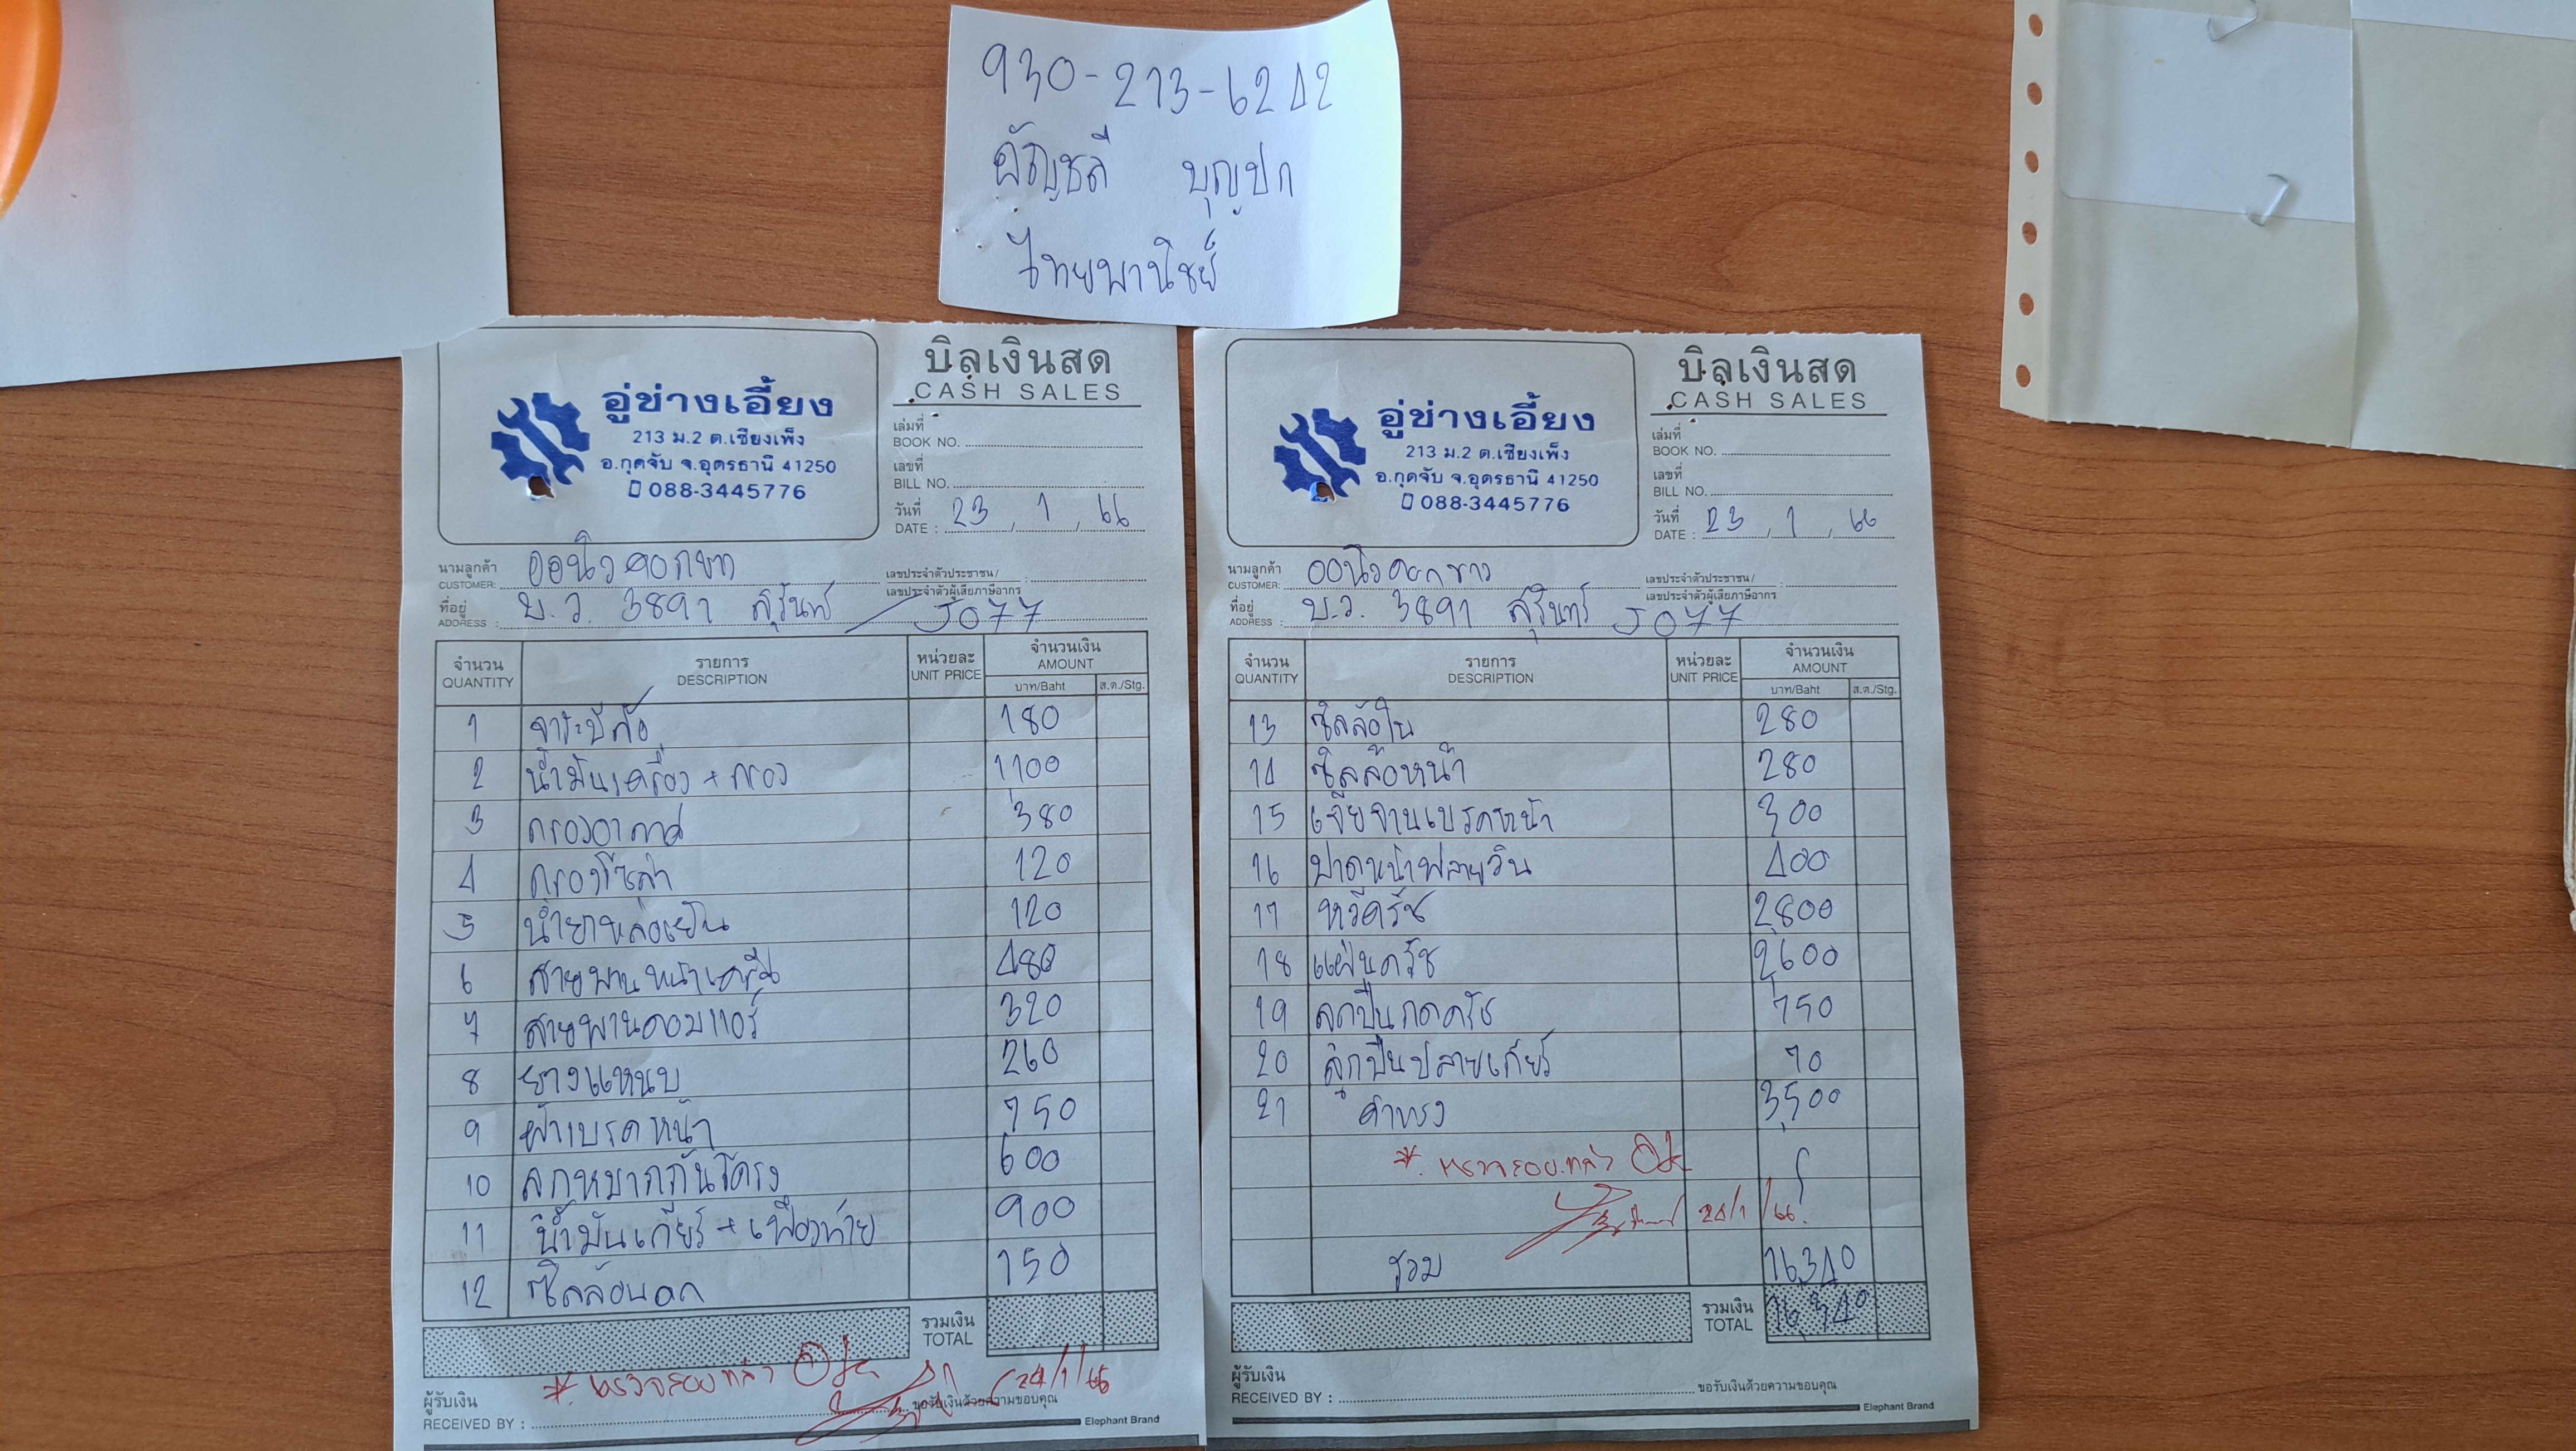 930-213-6242
อัญชลี บุญปก
ไทยพานิชย์
บิลเงินสด
CASH SALES
อู่ช่างเอี้ยง
213 ม.2 ต.เชียงเพ็ง
อ.กุดจับ จ.อุดรธานี 41250
088-3445776
เล่มที่
BOOK NO.
เลขที่
BILL NO.
วันที่
DATE : 23 / 1 / 66
นามลูกค้า
CUSTOMER: ออนิวดอกขาว
เลขประจำตัวประชาชน/ :
เลขประจำตัวผู้เสียภาษีอากร
ที่อยู่
ADDRESS : บ.ว. 3891 สุรินทร์ J077
จำนวน รายการ หน่วยละ จำนวนเงิน
QUANTITY DESCRIPTION UNIT PRICE AMOUNT
บาท/Baht ส.ต./Stg.
1 จาระบีล้อ 180
2 น้ำมันเครื่อง + กรอง 1100
3 กรองอากาศ 380
4 กรองโซล่า 120
5 น้ำยาหล่อเย็น 120
6 สายพานหน้าเครื่อง 480
7 สายพานคอมแอร์ 320
8 ยางแหนบ 260
9 ผ้าเบรคหน้า 750
10 ลูกหมากกันโครง 600
11 น้ำมันเกียร์ + เฟืองท้าย 900
12 ซิลล้อนอก 150
รวมเงิน
TOTAL
*. ตรวจสอบแล้ว
24/1/66
ผู้รับเงิน
RECEIVED BY : ขอรับเงินด้วยความขอบคุณ
Elephant Brand
บิลเงินสด
CASH SALES
อู่ช่างเอี้ยง
213 ม.2 ต.เชียงเพ็ง
อ.กุดจับ จ.อุดรธานี 41250
088-3445776
เล่มที่
BOOK NO.
เลขที่
BILL NO.
วันที่
DATE : 23 / 1 / 66
นามลูกค้า
CUSTOMER: ออนิวดอกขาว
เลขประจำตัวประชาชน/ :
เลขประจำตัวผู้เสียภาษีอากร
ที่อยู่
ADDRESS : บ.ว. 3891 สุรินทร์ J077
จำนวน รายการ หน่วยละ จำนวนเงิน
QUANTITY DESCRIPTION UNIT PRICE AMOUNT
บาท/Baht ส.ต./Stg.
13 ซิลล้อใน 280
14 ซิลล้อหน้า 280
15 เจียจานเบรคหน้า 300
16 ปาดหน้าฟลายวิน 400
17 หวีครัช 2,800
18 แผ่นครัช 2,600
19 ลูกปืนกดครัช 750
20 ลูกปืนปลายเกียร์ 70
21 ค่าแรง 3,500
*. ตรวจสอบแล้ว
24/1/66
รวม 16,340
รวมเงิน
TOTAL 16,340
ผู้รับเงิน
RECEIVED BY : ขอรับเงินด้วยความขอบคุณ
Elephant Brand